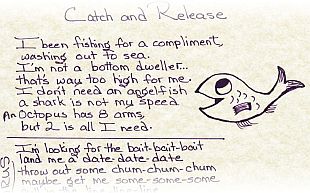 Catch and Release
I been fishing for a compliment,
washing out to sea.
I'm not a bottom dweller...
that's way too high for me.
I don't need an angelfish
a shark is not my speed
An Octopus has 8 arms,
but 2 is all I need.
I'm looking for the bait-bait-bait
land me a date-date-date
throw out some chum-chum-chum
maybe get me some-some-some